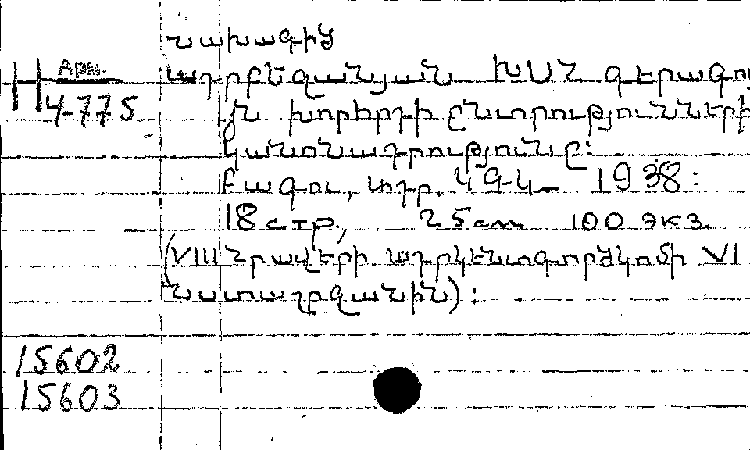 Նախագիծ
Арм.
4-775
Ադրբեջանյան ԽՍՀ գերագու
յն խորհրդի ընտրությունների
կանոնադրությունը:
Բագու, տպր. ԿԳԿ— 1938:
18 стр., 25 см 100 экз.
(VIII հրավերի Ադրկենտգործկոմի VI
նստաշրջանին):
15602
15603